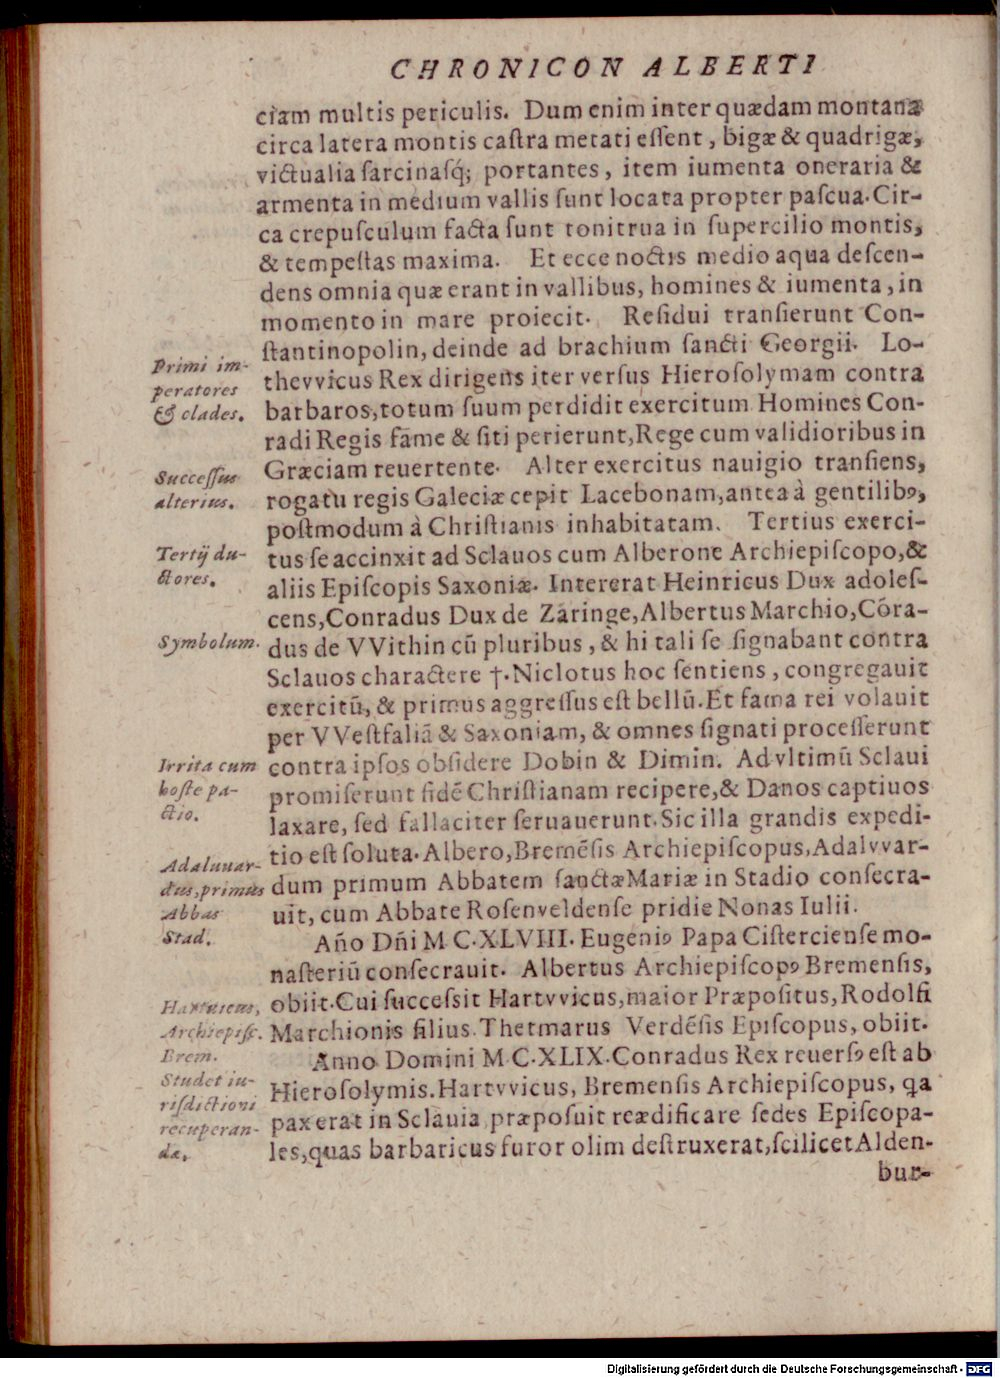 CHRONICON ALBERTI
ciam multis periculis. Dum enim inter quædam montana
circa latera montis caſtra metati eſſent, bigæ & quadrigæ,
victualia ſarcinaſq́; portantes, item iumenta oneraria &
armenta in medium vallis ſunt locata propter paſcua. Cir-
ca crepuſculum facta ſunt tonitrua in ſupercilio montis,
& tempeſtas maxima. Et ecce noctis medio aqua deſcen-
dens omnia quæ erant in vallibus, homines & iumenta, in
momento in mare proiecit. Reſidui tranſierunt Con-
ſtantinopolin, deinde ad brachium ſancti Georgii. Lo-
Primi im-
peratores
& clades.
thevvicus Rex dirigens iter verſus Hieroſolymam contra
barbaros, totum ſuum perdidit exercitum Homines Con-
radi Regis fame & ſiti perierunt, Rege cum validioribus in
Græciam reuertente. Alter exercitus nauigio tranſiens,
Succeſſus
alterius.
rogatu regis Galeciæ cepit Lacebonam, antea à gentilibꝰ,
poſtmodum à Chriſtianis inhabitatam. Tertius exerci-
Tertij du-
ctores.
tus ſe accinxit ad Sclauos cum Alberone Archiepiſcopo, &
aliis Epiſcopis Saxoniæ. Intererat Heinricus Dux adoleſ-
cens, Conradus Dux de Zaringe, Albertus Marchio, Cõra-
Symbolum.
dus de VVithin cũ pluribus, & hi tali ſe ſignabant contra
Sclauos charactere †. Niclotus hoc ſentiens, congregauit
exercitũ, & primus aggreſſus eſt bellũ. Et fama rei volauit
per VVeſtfaliã & Saxoniam, & omnes ſignati proceſſerunt
Irrita cum
hoſte pa-
ctio.
contra ipſos obſidere Dobin & Dimin. Ad vltimũ Sclaui
promiſerunt fidẽ Chriſtianam recipere, & Danos captiuos
laxare, ſed fallaciter ſeruauerunt. Sic illa grandis expedi-
tio eſt ſoluta. Albero, Bremẽſis Archiepiſcopus, Adalvvar-
Adaluuar-
dus, primus
Abbas
Stad.
dum primum Abbatem ſanctæ Mariæ in Stadio conſecra-
uit, cum Abbate Roſenveldenſe pridie Nonas Iulii.
Año Dñi M C. XLVIII. Eugeniꝰ Papa Ciſtercienſe mo-
naſteriũ conſecrauit. Albertus Archiepiſcopꝰ Bremenſis,
Hartuicus,
Archiepiſc.
Brem.
Studet iu-
riſdictioni
recuperan-
dæ.
obiit. Cui ſucceſſit Hartvvicus, maior Præpoſitus, Rodolfi
Marchionis filius. Thetmarus Verdẽſis Epiſcopus, obiit.
Anno Domini M C. XLIX. Conradus Rex reuerſꝰ eſt ab
Hieroſolymis. Hartvvicus, Bremenſis Archiepiſcopus, qa
pax erat in Sclauia præpoſuit reædificare ſedes Epiſcopa-
les, quas barbaricus furor olim deſtruxerat, ſcilicet Alden-
bur-
Digitalisierung gefördert durch die Deutsche Forschungsgemeinschaft - DFG